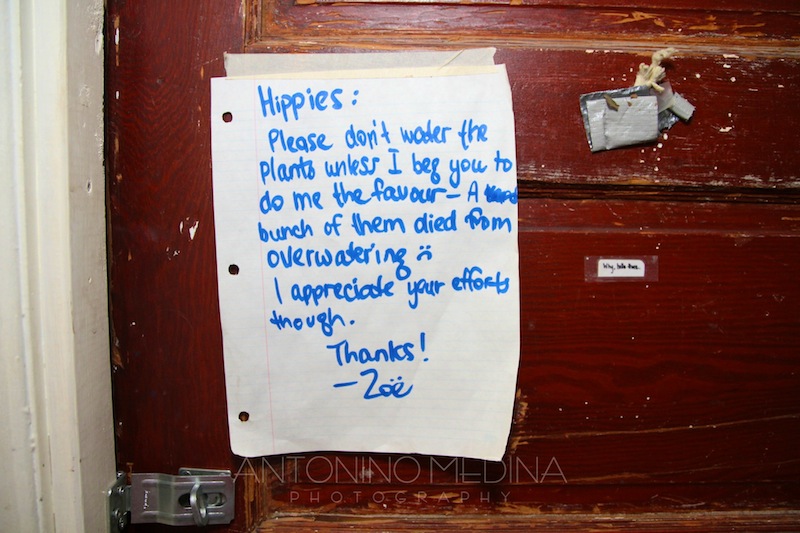 Hippies:
Please don't water the
plants unless I beg you to
do me the favour - A
bunch of them died from
overwatering :(
I appreciate your efforts
though.
Thanks!
- Zoë
Why, hello there.
ANTONINO MEDINA
PHOTOGRAPHY